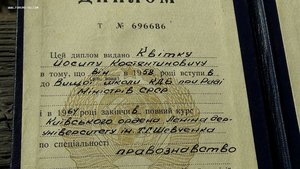 ДИПЛОМ
Т № 696686
Цей диплом видано Квітку
Йосипу Костянтиновичу
в тому, що він в 1958 році вступив до
Вищої школи КДБ при Раді
Міністрів СРСР
і в 1961 році закінчив повний курс
Київського ордена Леніна дер-
університету ім. Т.Г. Шевченка
по спеціальності
правознавство